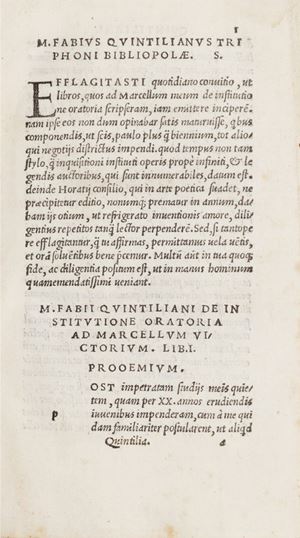 1
M. FABIVS QVINTILIANVS TRI
PHONI BIBLIOPOLÆ. S.
EFFLAGITASTI quotidiano conuitio, ut
libros, quos ad Marcellum meum de institutio
ne oratoria scripseram, iam emittere inciperē.
nam ipse eos non dum opinabar satis maturuisse, qbus
componendis, ut scis, paulo plus q̃ biennium, tot alio-
qui negotijs districtus impendi. quod tempus non tam
stylo, q̃ inquisitioni instituti operis propè infiniti, & le
gendis auctoribus, qui sunt innumerabiles, datum est.
deinde Horatij consilio, qui in arte poetica suadet, ne
præcipitetur editio, nonumq; prematur in annum, da-
bam ijs otium, ut refrigerato inuentionis amore, dili-
gentius repetitos tanq̃ lector perpenderē. Sed, si tantope
re efflagitantur, q̃ tu affirmas, permittamus uela uētis,
et orā soluētibus bene pcemur. Multū aūt in tua quoq;
fide, ac diligentia positum est, ut in manus hominum
quamemendatissimi ueniant.
M. FABII QVINTILIANI DE IN
STITVTIONE ORATORIA
AD MARCELLVM VI/
CTORIVM. LIB. I.
PROOEMIVM.
OST impetratam studijs meis quie/
tem, quam per XX. annos erudiendis
P iuuenibus impenderam, cum à me qui
dam familiariter postularent, ut aliqd
Quintilia. a